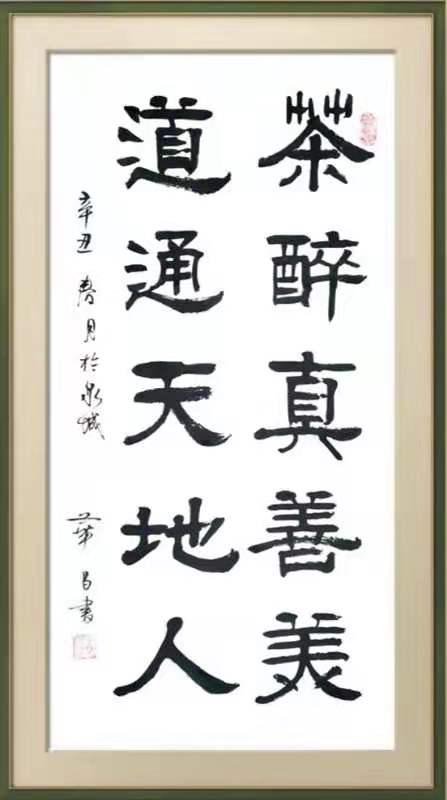 茶醉真善美
道通天地人
辛丑春月於泉城
華昌書